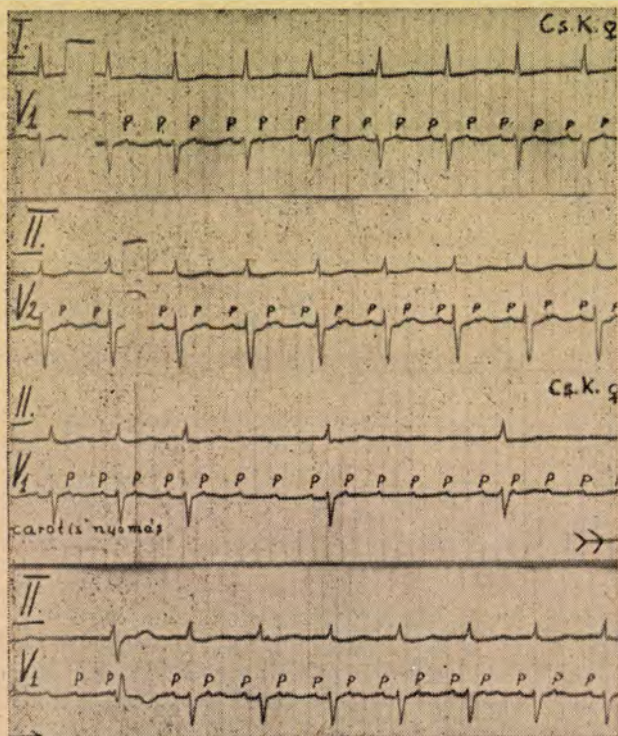 I. Cs. K. ♀
V1 P P P P P P P P P P P P P P P
II.
V2 P P P P P P P P P P P P P P P P
II. Cs. K. ♀
V1 P P P P P P P P P P P P P P P P P
carotis nyomás
II
V1 P P P P P P P P P P P P P P P